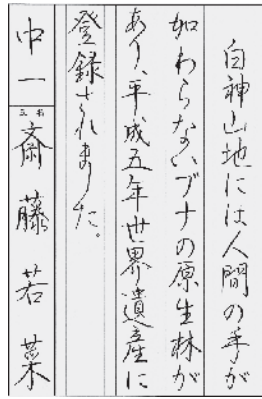 白神山地には人間の手が
加わらないブナの原生林が
あり、平成五年世界遺産に
登録されました。
中一
氏名
斎藤若菜